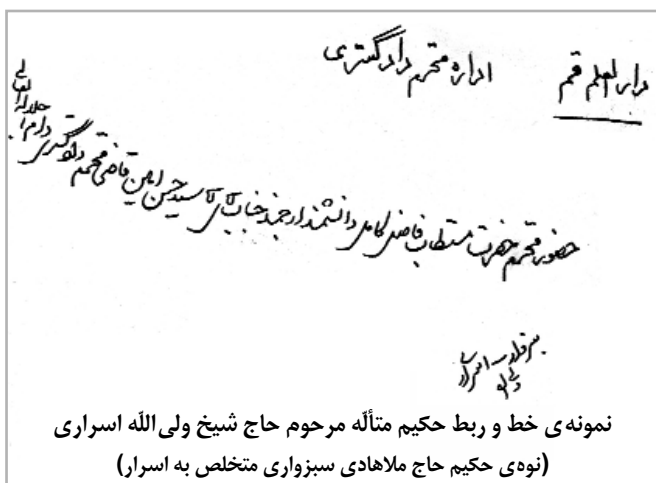 دارالعلم قم
اداره محترم دادگستری
حضور محترم حضرت مستطاب فاضل کامل دانشمند ارجمند جناب آقای آقا سید حسن امین قاضی محترم دادگستری دام اجلاله العالی
اسراری
نمونه‌ی خط و ربط حکیم متألّه مرحوم حاج شیخ ولی‌اللّه اسراری
(نوه‌ی حکیم حاج ملاهادی سبزواری متخلص به اسرار)